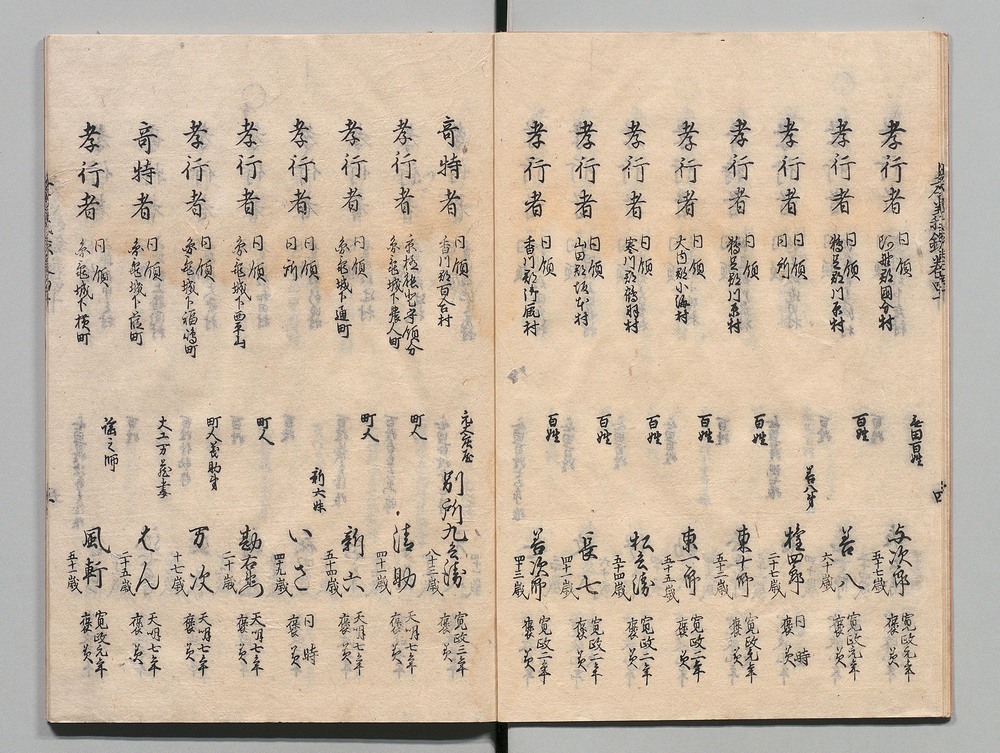 孝行者
同領
阿野郡國分村
無田百姓
与次郎
五十七歳
寛政元年
褒美
孝行者
同領
鵜足郡川原村
百姓
若八
六十歳
寛政元年
褒美
孝行者
同領
同所
若八弟
権四郎
二十七歳
同時
褒美
孝行者
同領
鵜足郡川原村
百姓
東十郎
三十一歳
寛政元年
褒美
孝行者
同領
大内郡小海村
百姓
東一郎
五十五歳
寛政二年
褒美
孝行者
同領
寒川郡鶴羽村
百姓
松兵衛
五十四歳
寛政二年
褒美
孝行者
同領
山田郡坂本村
百姓
長七
四十歳
寛政二年
褒美
孝行者
同領
香川郡
村
百姓
若次郎
四十三歳
寛政二年
褒美
奇特者
同領
香川郡百合村
元大庄屋
別所九兵衛
八十三歳
寛政三年
褒美
孝行者
京極能登守領分
圓亀城下農人町
町人
清助
四十歳
天明七年
褒美
孝行者
同領
圓亀城下通町
町人
新六
五十四歳
天明七年
褒美
孝行者
同領
同所
新六妹
いさ
四十九歳
同時
褒美
孝行者
同領
圓亀城下西平山
町人
勘右衛門
二十歳
天明七年
褒美
孝行者
同領
圓亀城下福嶋町
町人茂助弟
万次
十七歳
天明七年
褒美
奇特者
同領
圓亀城下
町
大工万蔵妻
はん
二十五歳
天明七年
褒美
孝行者
同領
圓亀城下横町
謡之師
風軒
五十一歳
寛政元年
褒美